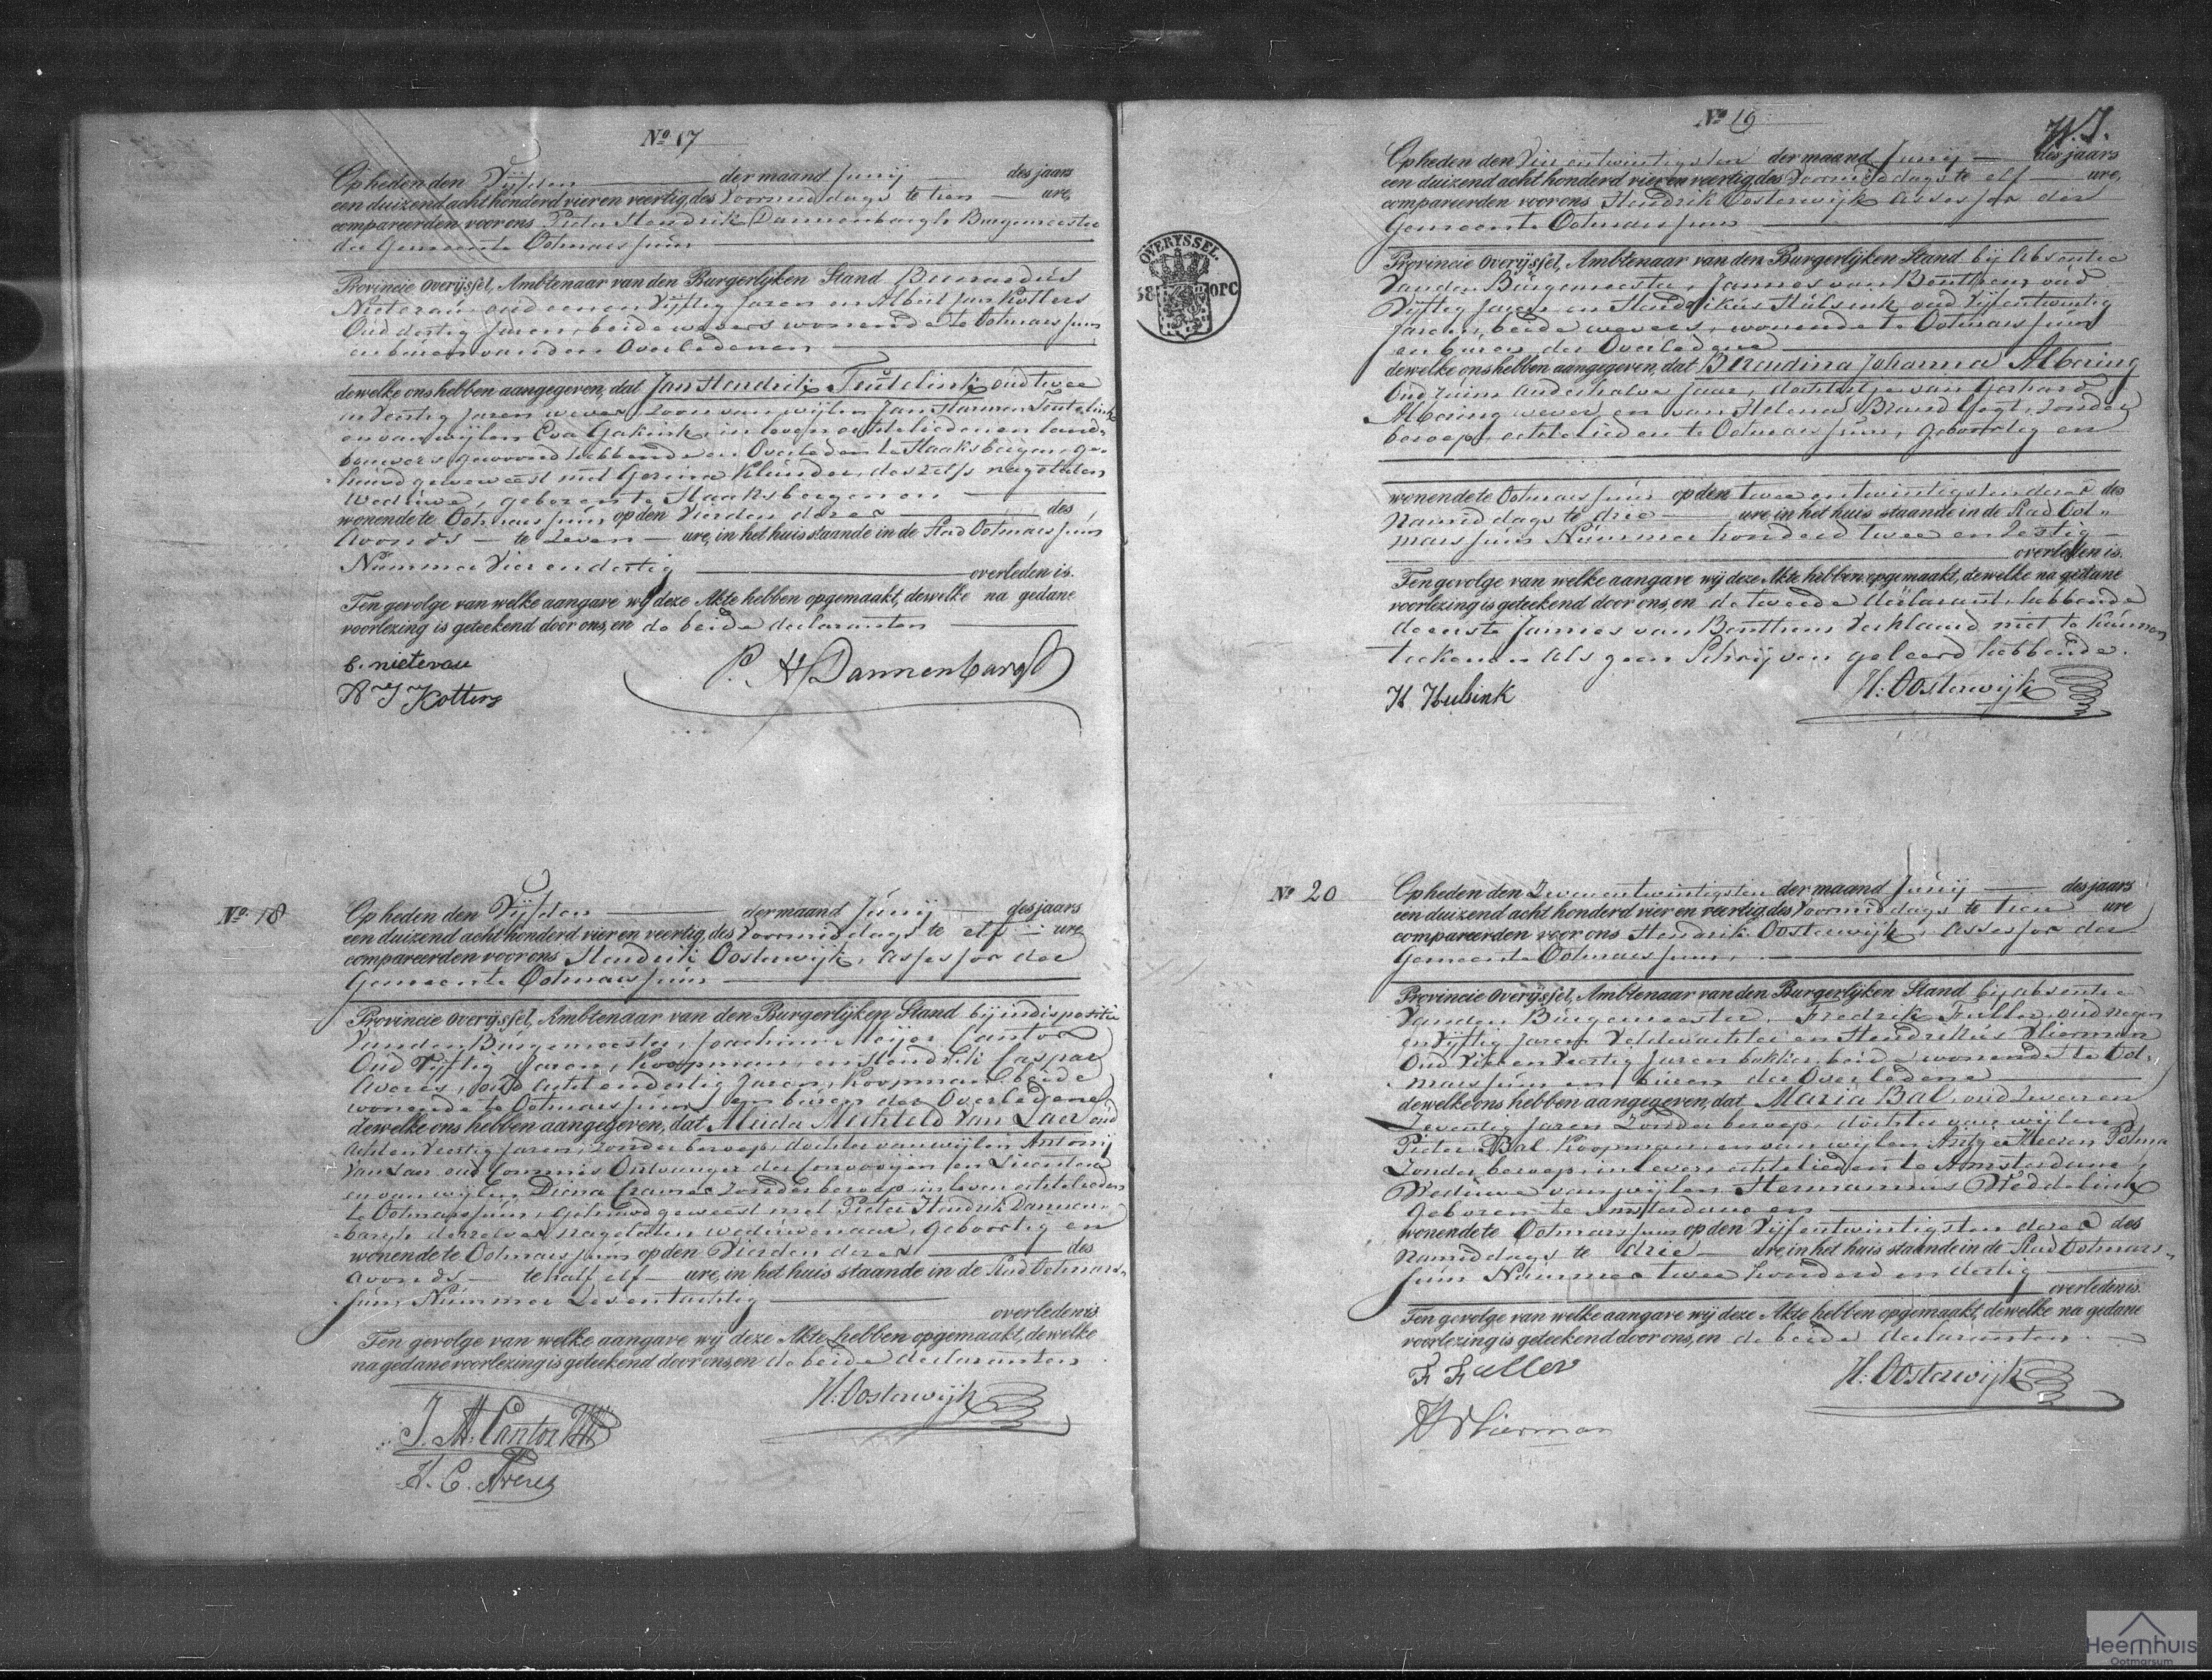 Nº 17
Op heden den Vijfden der maand Junij des jaars
een duizend acht honderd vier en veertig, des Voormiddags te tien ure,
compareerden voor ons Pieter Hendrik Dannenbargh Burgemeester
der Gemeente Ootmarssum
Provincie Overÿssel, Ambtenaar van den Burgerlyken Stand Bernardus
Nieterau oud een en Vijftig Jaren en Albert Jan Kotters
Oud dertig Jaren, beide wevers wonende te Ootmarssum
en buren van den Overledenen
dewelke ons hebben aangegeven, dat Jan Hendrik Teutelink oud twee
en Veertig Jaren wever, Zoon van wijlen Jan Harmen Teutelink
en van wijlen Eva Gakink, in leven echtelieden en land-
bouwers gewoond hebbende en Overleden te Haaksbergen, ge-
huwd geweest met Gesina Klunder, deszelfs nagelaten
Weduwe, geboren te Haaksbergen en
wonende te Ootmarssum op den Vierden dezer des
Avonds te Zeven ure, in het huis staande in de Stad Ootmarssum
Nummer Vier en dertig overleden is.
Ten gevolge van welke aangave wy deze Akte hebben opgemaakt, dewelke na gedane
voorlezing is geteekend door ons, en de beide declaranten
B. nieterau
A J Kotters
P. H Dannenbargh
Nº 18
Op heden den Vijfden der maand Junij des jaars
een duizend acht honderd vier en veertig, des Voormiddags te elf ure,
compareerden voor ons Hendrik Oosterwijk, Assessor der
Gemeente Ootmarssum
Provincie Overÿssel, Ambtenaar van den Burgerlyken Stand bij indispositie
Van den Burgemeester, Joachim Meijer Cantor
Oud Vijftig Jaren, Koopman, en Hendrik Caspar
Averes, oud acht en dertig Jaren, Koopman beide
wonende te Ootmarssum en buren der Overledene
dewelke ons hebben aangegeven, dat Aleida Mechteld Van Laer oud
Acht en Veertig Jaren, Zonder beroep, dochter van wijlen Antonij
Van Laer oud Commis Ontvanger der Convooijen en Licenten
en van wijlen Diena Cramer Zonder beroep, in leven echtelieden
te Ootmarssum, gehuwd geweest met Pieter Hendrik Dannen-
bargh derzelver nagelaten weduwenaar, geboortig en
wonende te Ootmarssum op den Vierden dezer des
avonds te half elf ure, in het huis staande in de Stad Ootmars-
sum Nummer Zes en tachtig
overleden is
Ten gevolge van welke aangave wy deze Akte hebben opgemaakt, dewelke
na gedane voorlezing is geteekend door ons, en de beide declaranten
H. Oosterwijk
J. M. Cantor
H. C. Averes
Nº 19
Op heden den Vier en twintigsten der maand Junij des jaars
een duizend acht honderd vier en veertig, des Voormiddags te elf ure,
compareerden voor ons Hendrik Oosterwijk Assessor der
Gemeente Ootmarssum
OVERYSSEL.
OPC
Provincie Overÿssel, Ambtenaar van den Burgerlyken Stand bij Absentie
Van den Burgemeester, Jannes van Benthem oud
Vijftig Jaren en Hendrikus Hulsink oud Vijf en twintig
Jaren, beide wevers, wonende te Ootmarssum
en buren der Overledene
dewelke ons hebben aangegeven, dat Berendina Johanna Albering
Oud ruim anderhalve Jaar, dochtertje van Gerhard
Albering wever, en van Helena Brand Vogt, zonder
beroep, echtelieden te Ootmarssum, geboortig en
wonende te Ootmarssum op den twee en twintigsten dezer des
Namiddags te drie ure, in het huis staande in de Stad Oot-
marssum Nummer honderd twee en Zestig
overleden is.
Ten gevolge van welke aangave wij deze Akte hebben opgemaakt, dewelke na gedane
voorlezing is geteekend door ons, en de tweede declarant, hebbende
de eerste Jannes van Benthem Verklaard niet te kunnen
teekenen als geen Schrijven geleerd hebbende.
H. Oosterwijk
H Hulsink
Nº 20
Op heden den Zeven en twintigsten der maand Junij des jaars
een duizend acht honderd vier en veertig, des Voormiddags te tien ure
compareerden voor ons Hendrik Oosterwijk, Assessor der
Gemeente Ootmarssum,
Provincie Overÿssel, Ambtenaar van den Burgerlijken Stand bij Absentie
Van den Burgemeester, Fredrik Fuller, oud negen
en Vijftig Jaren Veldwachter en Hendrikus Vlierman
Oud Vier en Veertig Jaren bakker, beide wonende te Oot-
marssum en buren der Overledene
dewelke ons hebben aangegeven, dat Maria Bal, oud Zeven en
Zeventig Jaren Zonder beroep, dochter van wijlen
Pieter Bal Koopman, en van wijlen
Zonder beroep, in leven echtelieden te Amsterdam,
Weduwe van wijlen Hermannus Weddelink
geboren te Amsterdam en
wonende te Ootmarssum op den Vijf en twintigsten dezer des
Namiddags te drie ure in het huis staande in de Stad Ootmars-
sum Nummer twee honderd en dertig
overleden is.
Ten gevolge van welke aangave wij deze Akte hebben opgemaakt, dewelke na gedane
voorlezing is geteekend door ons, en de beide declaranten
F Fuller
H. Oosterwijk
H Vlierman
Heemhuis
Ootmarsum